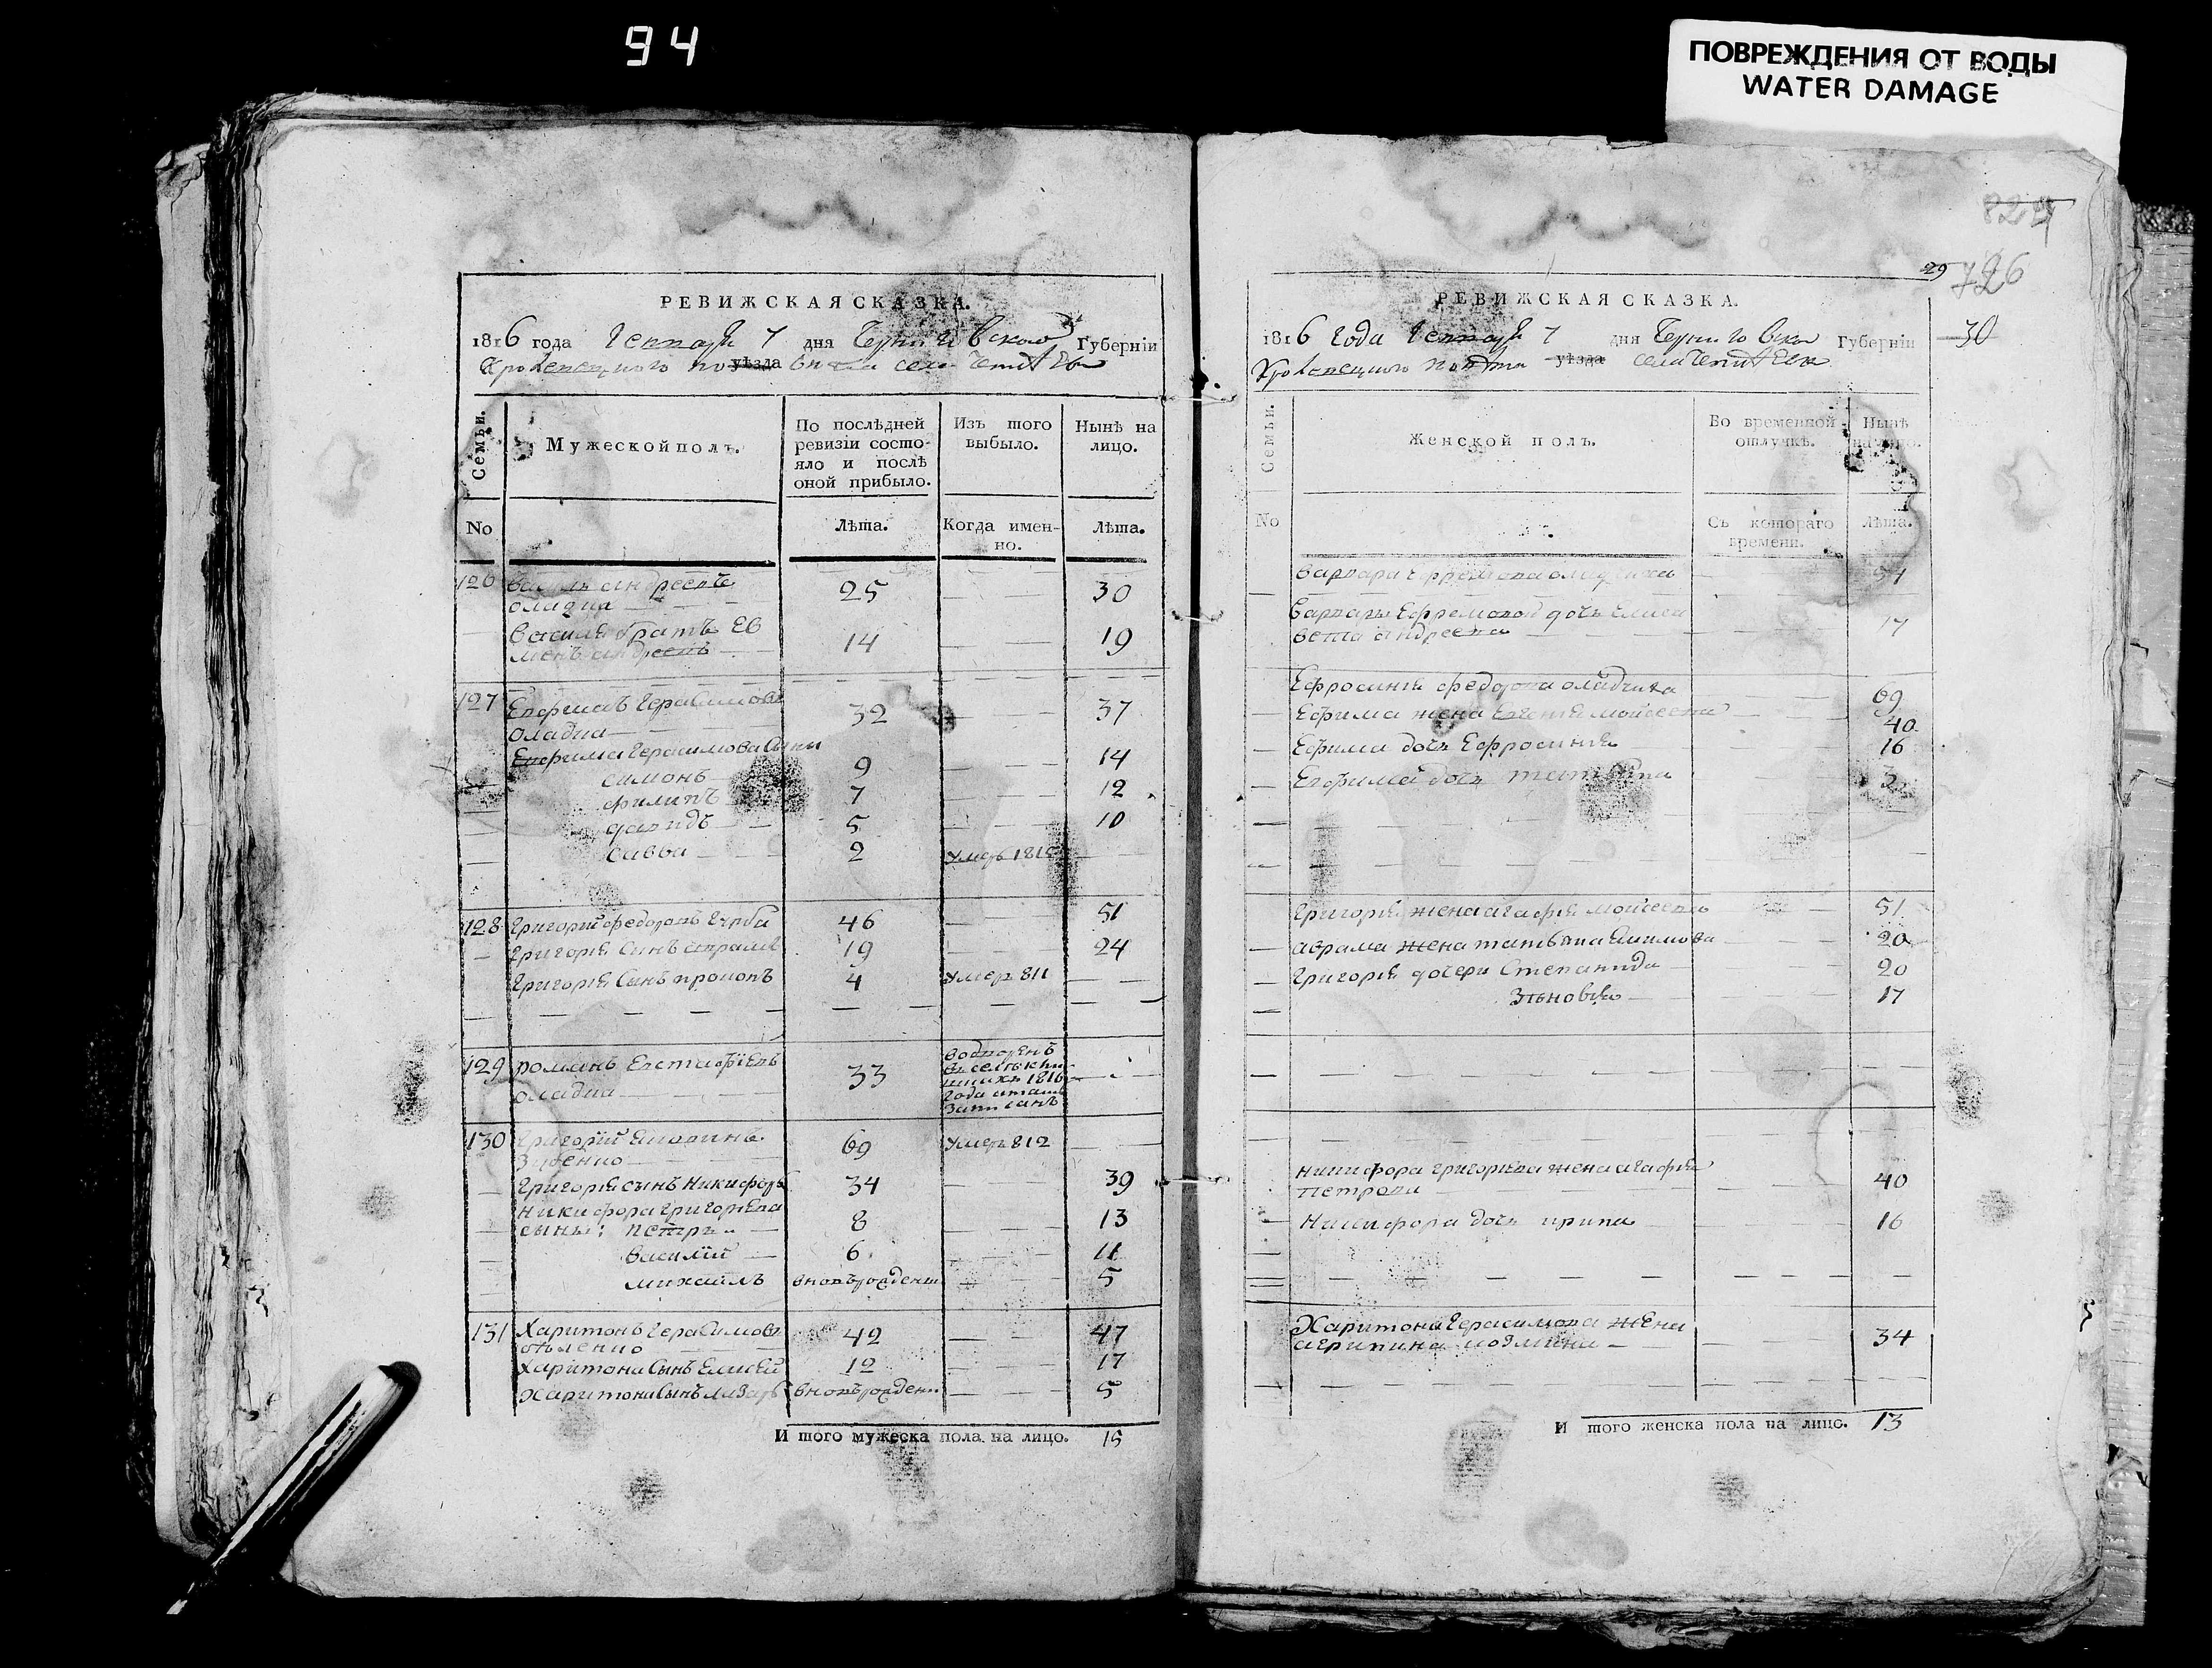 94
ПОВРЕЖДЕНИЯ ОТ ВОДЫ
WATER DAMAGE
РЕВИЖСКАЯ СКАЗКА.
1816 года Генваря 7 дня Черниговской Губерніи
Кролевецкого повѣта уѣзда села
Семьи.
Мужеской полъ.
По послѣдней ревизіи состо-
яло и послѣ
оной прибыло.
Изъ того
выбыло.
Нынѣ на
лицо.
No
Лѣта.
Когда имен-
но.
Лѣта.
126 Василь Андреевъ
оладка 25 30
Василя братъ Ев
менъ Андреевъ 14 19
127 Евфимъ Герасимовъ
оладка 32 37
Евфима Герасимова сыны
симонъ 9 14
филипъ 7 12
давидъ 5 10
савва 2 умеръ 1815
128 Григорій федоровъ 46 51
Григорія сынъ аврамъ 19 24
Григорія сынъ прокопъ 4 умер 811
129 романъ Евстафіевъ
оладка 33
1816
года и тамъ
записанъ
130 Григорій
69 умеръ 812
Григорія сынъ Никифоръ 34 39
Никифора григоріева
сыны: петръ 8 13
василій 6 11
михаилъ вновьрожденъ 5
131 Харитонъ Герасимовъ
42 47
Харитона сынъ Елисей 12 17
Харитона сынъ лазарь вновьрожденъ 5
И того мужеска пола на лицо. 15
824
29 726
30
РЕВИЖСКАЯ СКАЗКА.
1816 года Генваря 7 дня Черниговской Губерніи
Кролевецкого повѣта уѣзда села
Семьи.
Женской полъ.
Во временной
отлучкѣ.
Нынѣ
на лицо.
No
Съ котораго
времени.
Лѣта.
Варвара Ефремова
Варвары Ефремовой дочь Елиса
вета андреева 17
Ефросинія федорова 69
Ефима жена моисеева 40
Ефима дочь Ефросинія 16
Евфима дочь татьяна 3
Григорія жена агафія моисеева 51
аврама жена татьяна Екимова 20
Григорія дочери Степанида 20
Зѣновія 17
никифора григоріева жена агафія
Петрова 40
Никифора дочь ирина 16
Харитона Герасимова жена
агрипина козмина 34
И того женска пола на лицо. 13